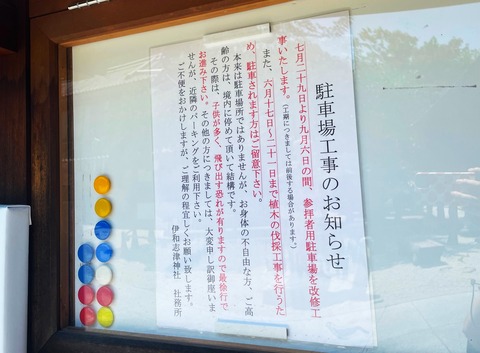 駐車場工事のお知らせ
七月二十九日より九月六日の間、参拝者用駐車場を改修工
事いたします。(工期につきましては前後する場合があります。)
また、六月十七日〜二十一日まで植木の伐採工事を行うた
め、駐車されます方はご留意下さい。
本来は駐車場所ではありませんが、お身体の不自由な方、ご高
齢の方は、境内に停めて頂いて結構です。
その際は、子供が多く、飛び出す恐れが有りますので最徐行で
お進み下さい。その他の方につきましては、大変申し訳御座いま
せんが、近隣のパーキングをご利用下さい。
ご不便をおかけしますが、ご理解の程宜しくお願い致します。
伊和志津神社 社務所